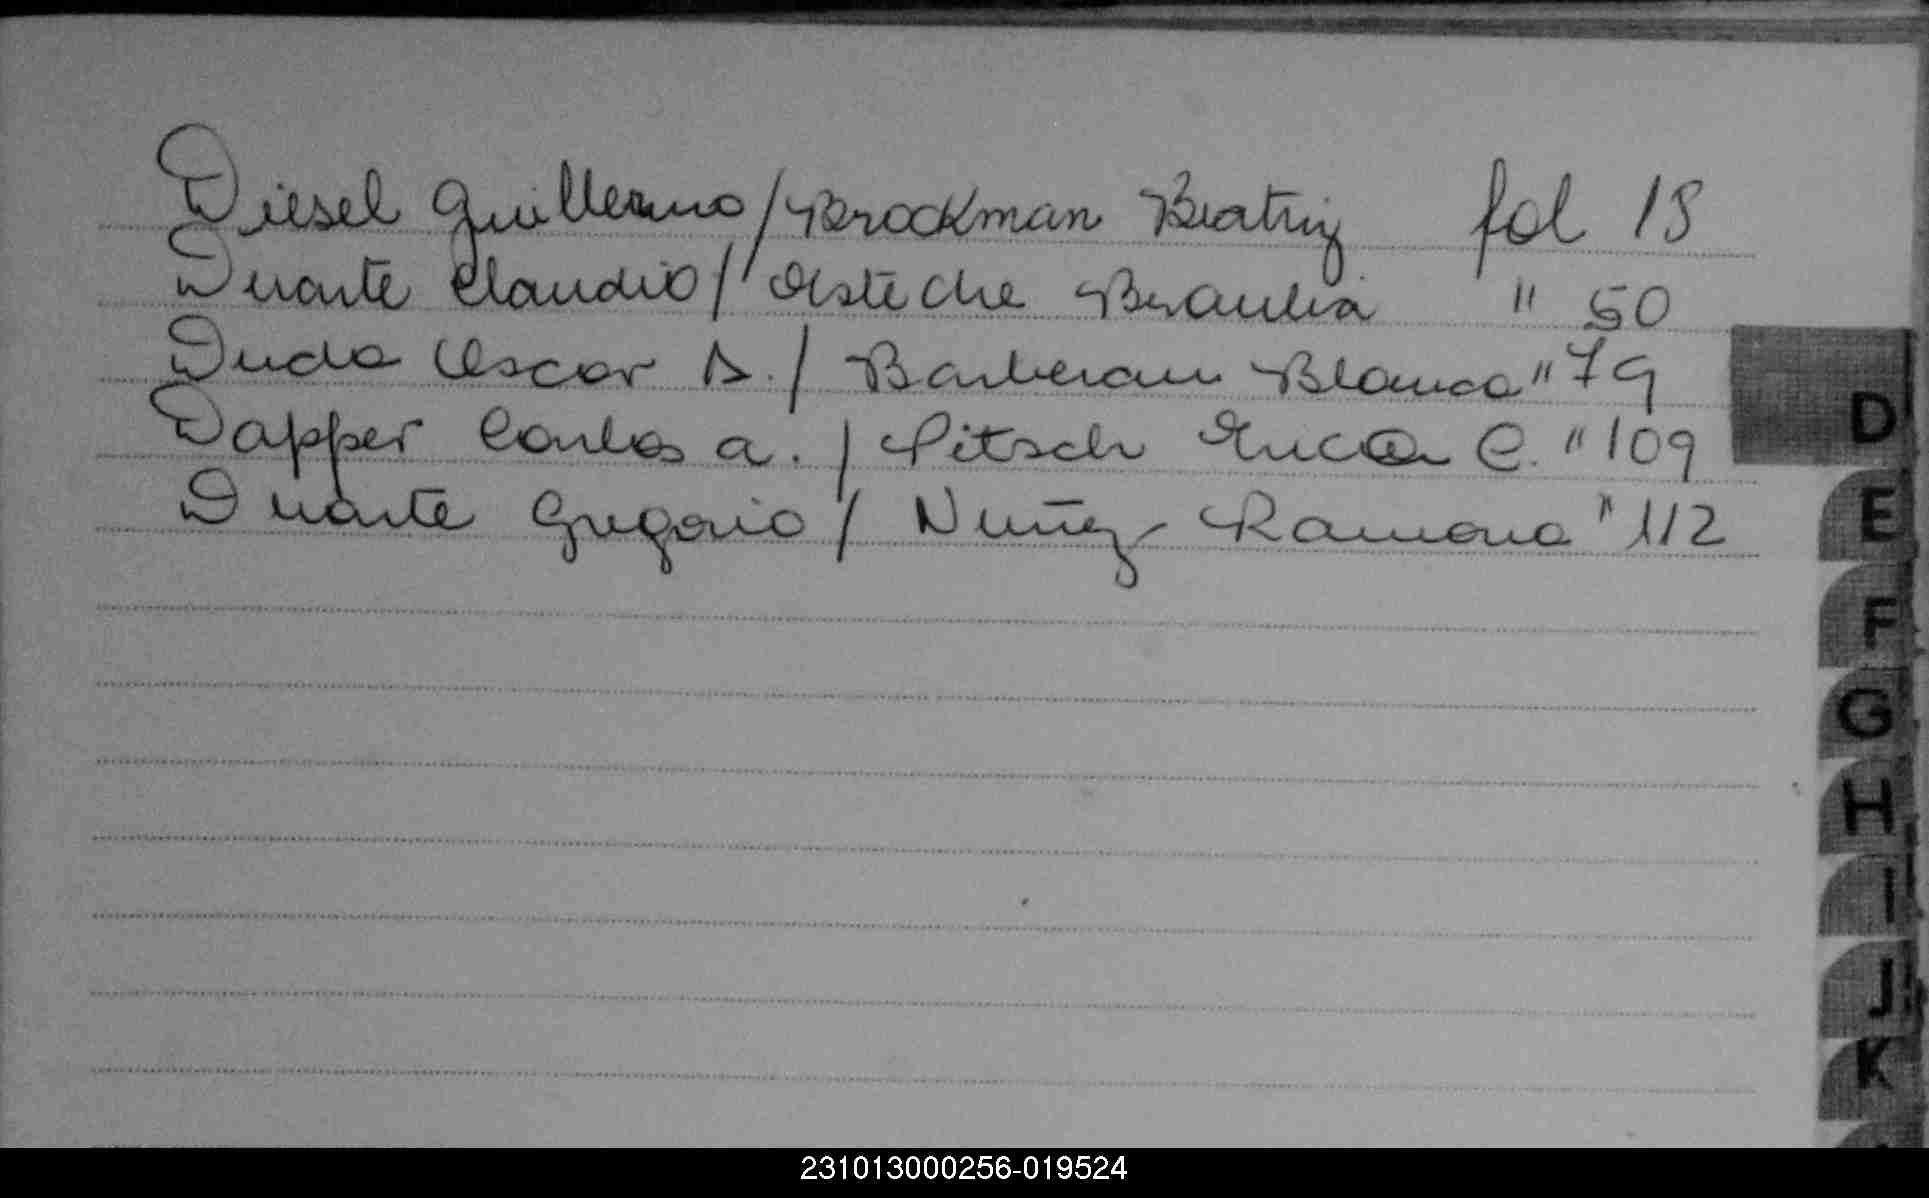 Diesel Guillermo / Brockman Beatriz fol 18
Duarte Claudio / Asteche Braulia " 50
Duda Oscar A. / Barberan Blanca " 79
Dapper Carlos A. / Pitsch Erica C. " 109
Duarte Gregorio / Nuñez Ramona " 112
D
E
F
G
H
I
J
K
231013000256-019524